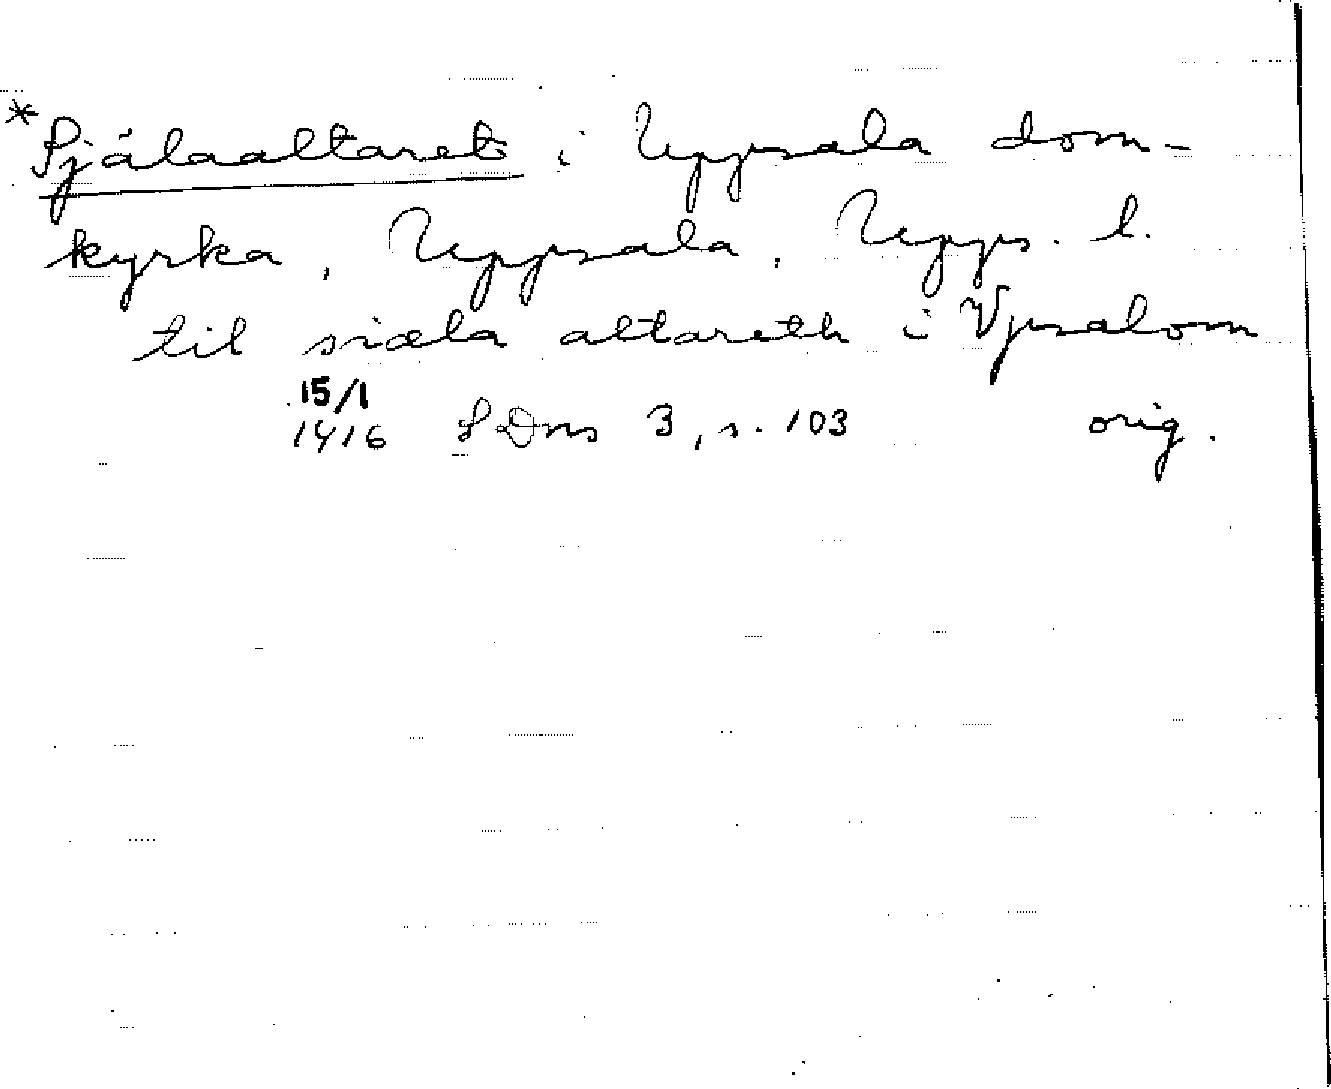 *Själaaltaret i Uppsala dom-
kyrka, Uppsala, Upps. l.
til siæla altareth i Vpsalom
15/1
1416 SDns 3, s. 103 orig.